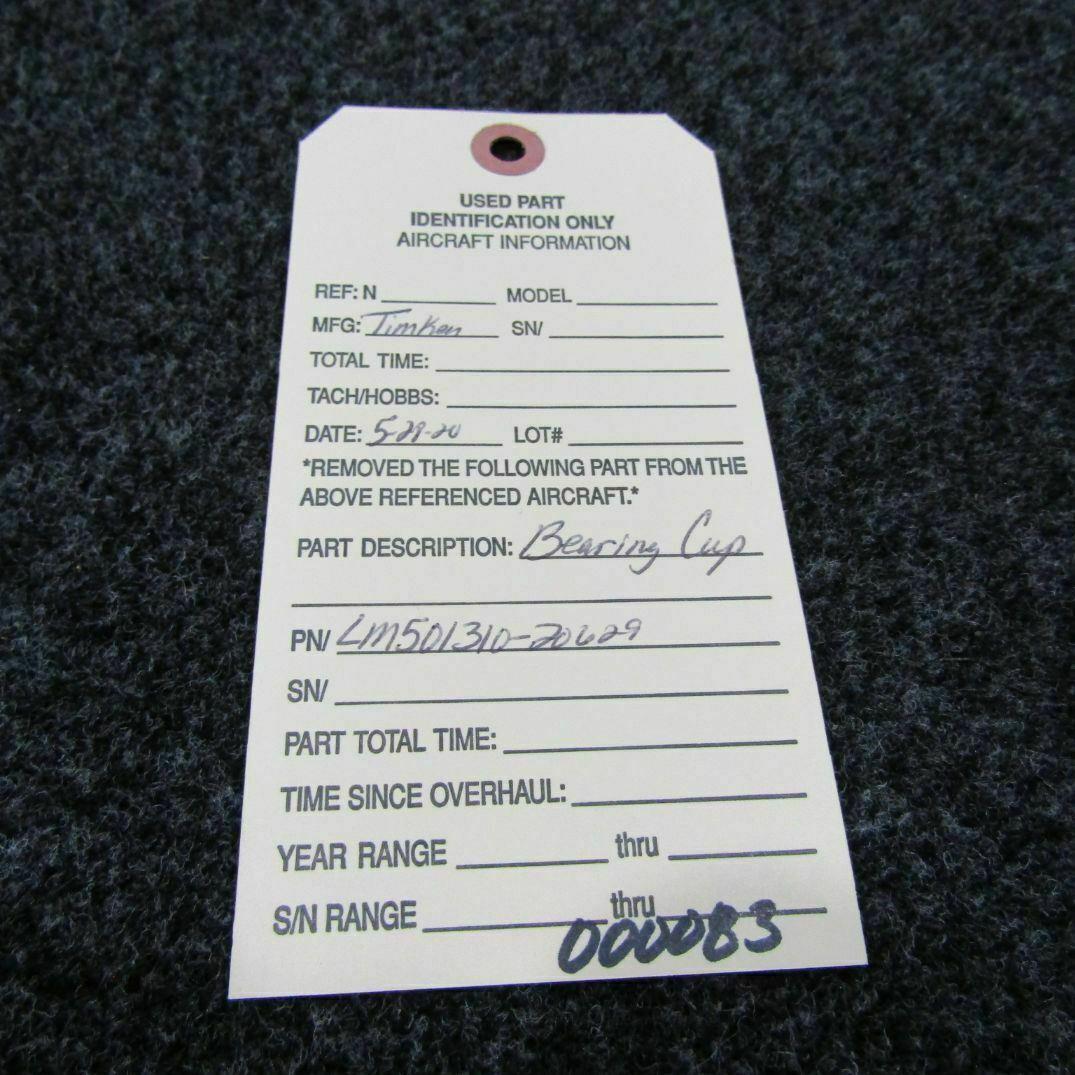 USED PART
IDENTIFICATION ONLY
AIRCRAFT INFORMATION
REF: N MODEL
MFG: Timken SN/
TOTAL TIME:
TACH/HOBBS:
DATE: 5-29-20 LOT#
*REMOVED THE FOLLOWING PART FROM THE
ABOVE REFERENCED AIRCRAFT.*
PART DESCRIPTION: Bearing Cup
PN/ LM501310-20629
SN/
PART TOTAL TIME:
TIME SINCE OVERHAUL:
YEAR RANGE thru
S/N RANGE thru
000083